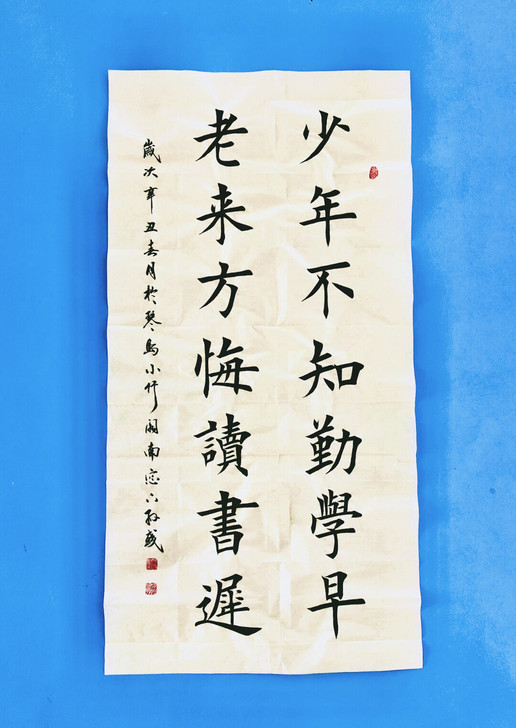 少年不知勤學早
老来方悔讀書遲
歲次辛丑春月於琴島小竹閣南窓下孫武